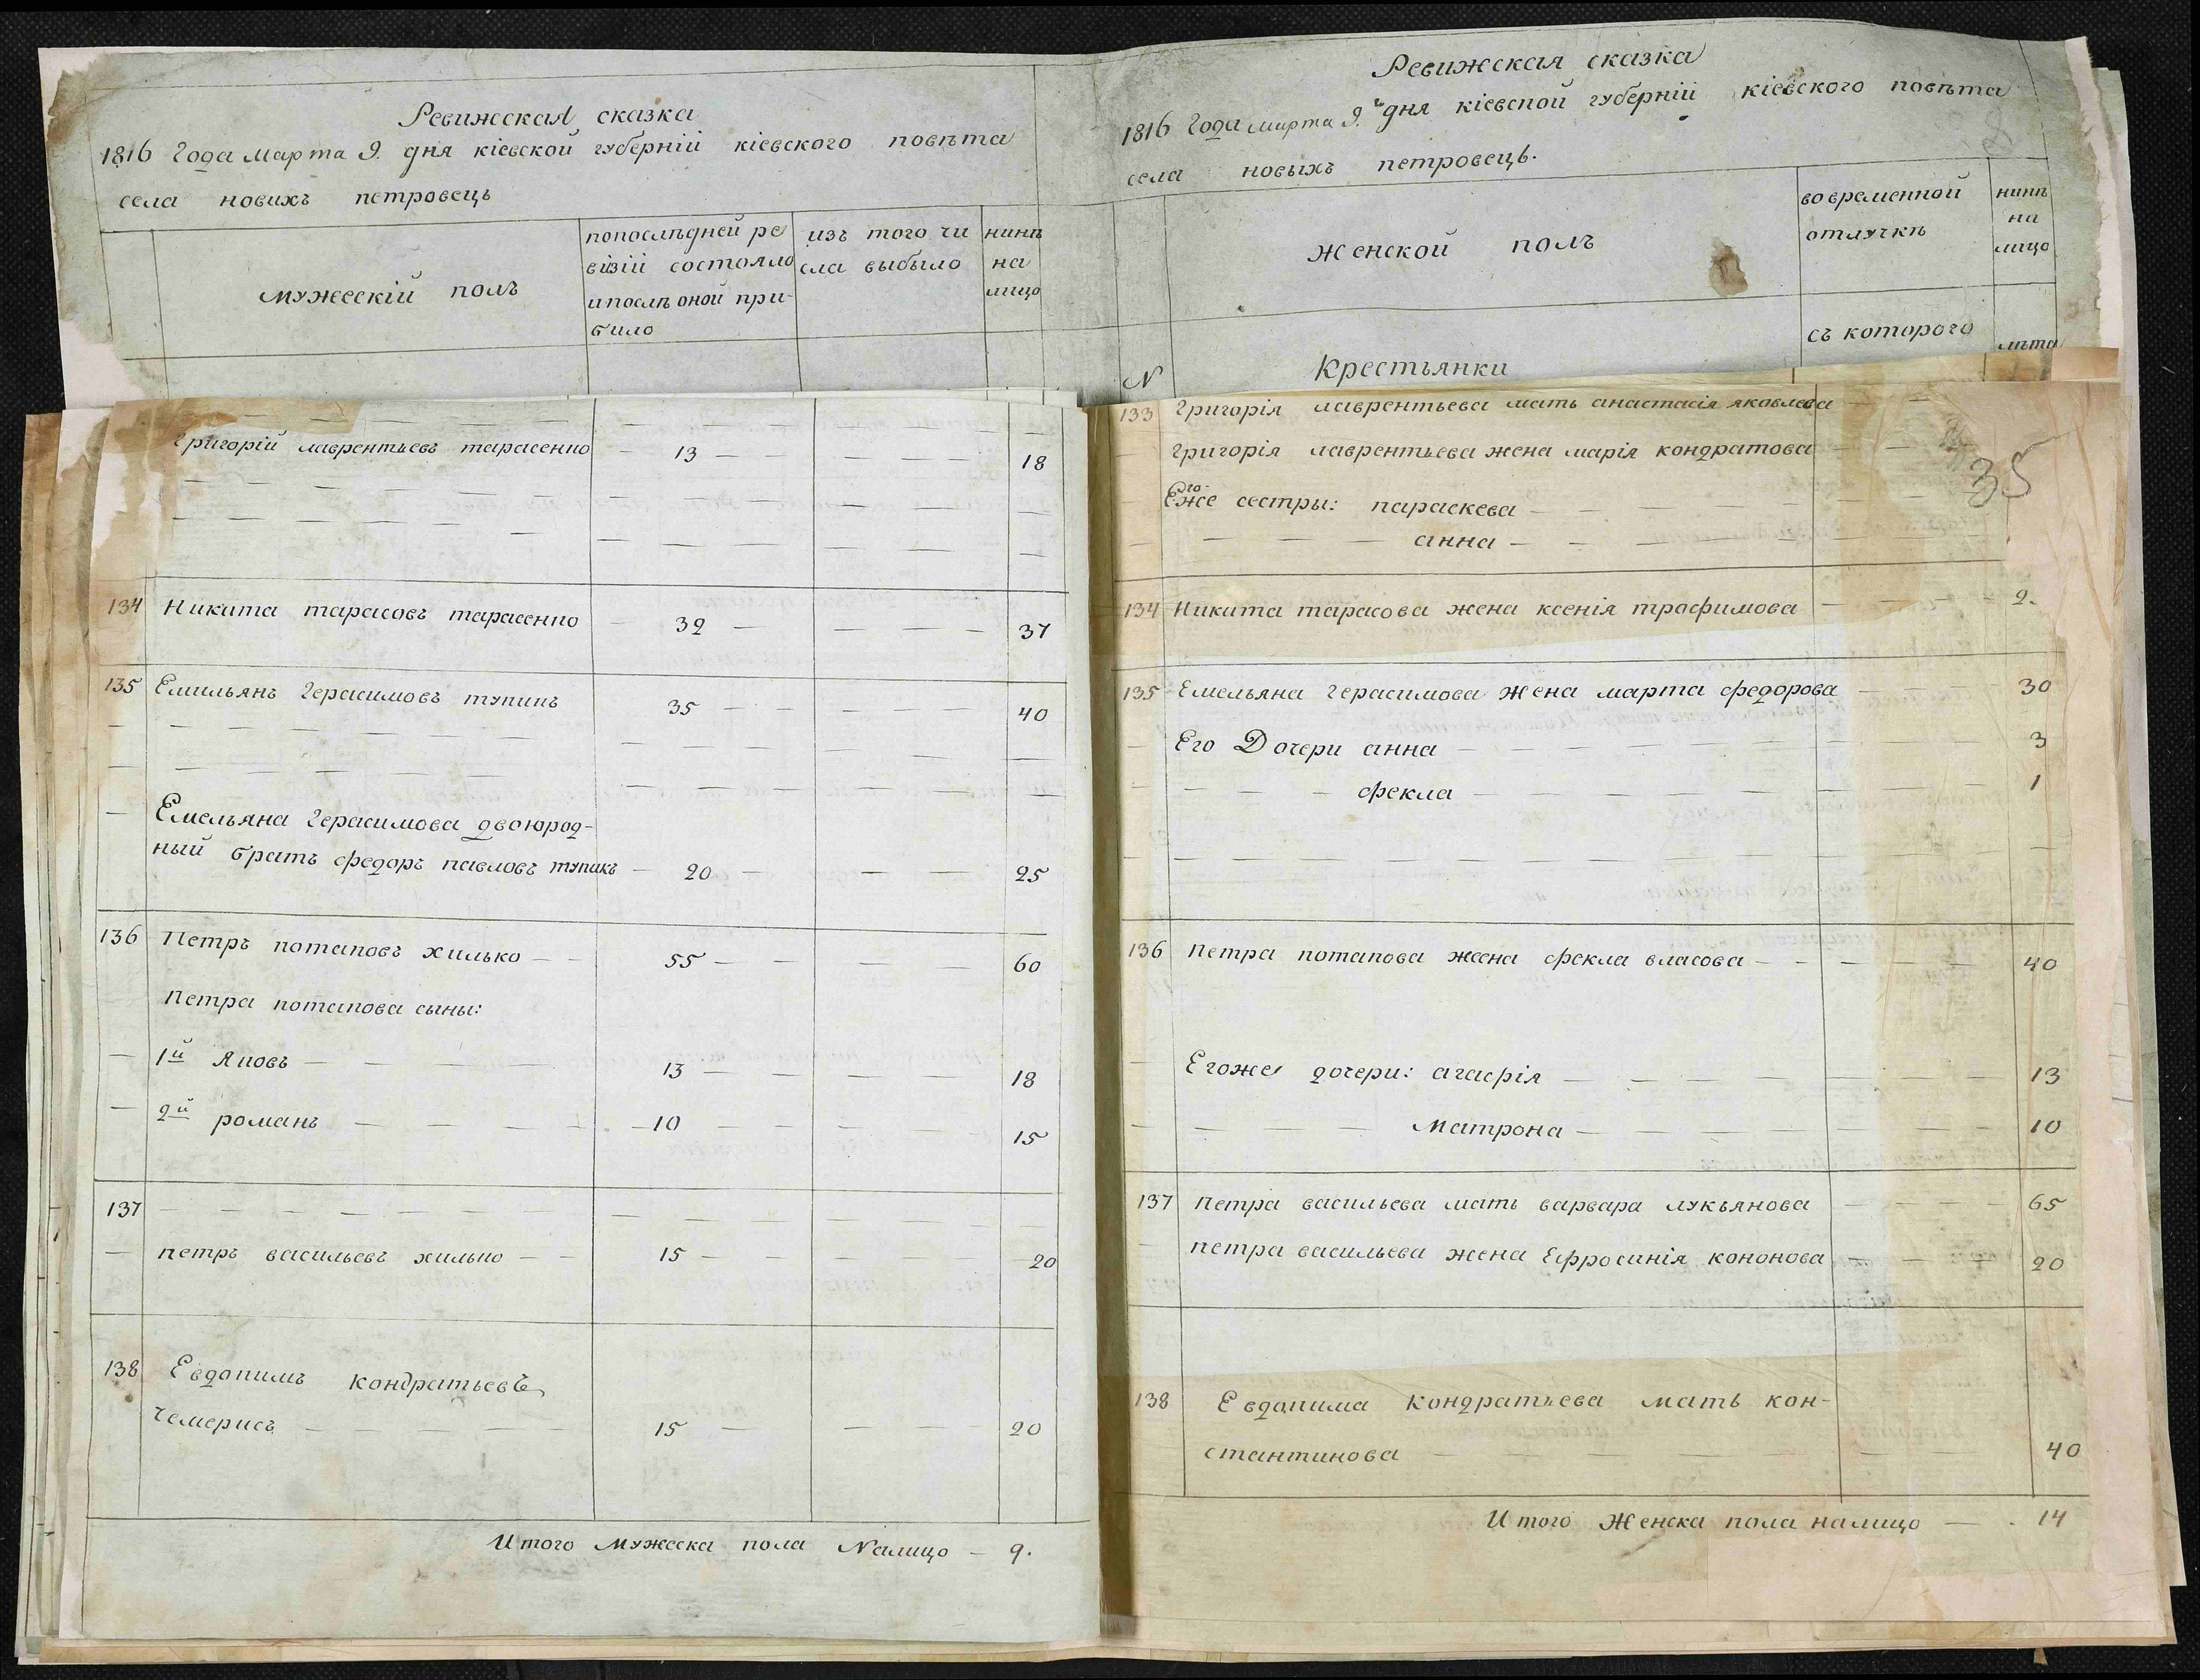 Ревижская сказка
1816 года марта 9. дня кіевской губерніи кіевского повѣта
села новихъ петровець
мужескій полъ
попослѣдней ре
візіи состояло
ипослѣ оной при-
било
изъ того чи
сла выбыло
нинѣ
на
лицо
григорій лаврентьевъ тарасенко — 13 — — — — 18
134 Никита тарасовъ тарасенко — 32 — — — — 37
135 Емильянъ герасимовъ тупикъ 35 — — — — — 40
Емельяна герасимова двоюрод-
ный братъ федоръ павловъ тупикъ — 20 — — — 25
136 Петръ потаповъ хилько — — 55 — — — — — 60
Петра потапова сыны:
— 1й Яковъ — — — — 13 — — — — — 18
— 2й романъ — — — — 10 — — — — — 15
137
— петръ васильевъ хилько — — 15 — — — — 20
138 Евдокимъ кондратьевъ
чемерисъ — — — — — 15 — — — — 20
Итого мужеска пола налицо — 9.
Ревижская сказка
1816 года марта 9.го дня кіевской губерніи кіевского повѣта
села новыхъ петровець.
женской полъ
вовременной
отлучкѣ
нинѣ
на
лицо
N Крестьянки
съ которого
лѣта
133 григорія лаврентьева мать анастасія яковлева
григорія лаврентьева жена марія кондратова
Егоже сестры: параскева — — — —
— — — — анна — — — — —
35
134 Никита тарасова жена ксенія трофимова — — — — 2.
135 Емельяна герасимова жена марта федорова — — — 30
— Его Дочери анна — — — — — — — 3
— — — — фекла — — — — — — — 1
136 петра потапова жена фекла власова — — — — — 40
— Егоже дочери: агафія — — — — — — 13
— — — — Матрона — — — — — — 10
137 петра васильева мать варвара лукьянова — — — 65
— петра васильева жена Ефросинія кононова — — — 20
138 Евдокима кондратьева мать кон-
стантинова — — — — — — 40
Итого женска пола налицо — . 14